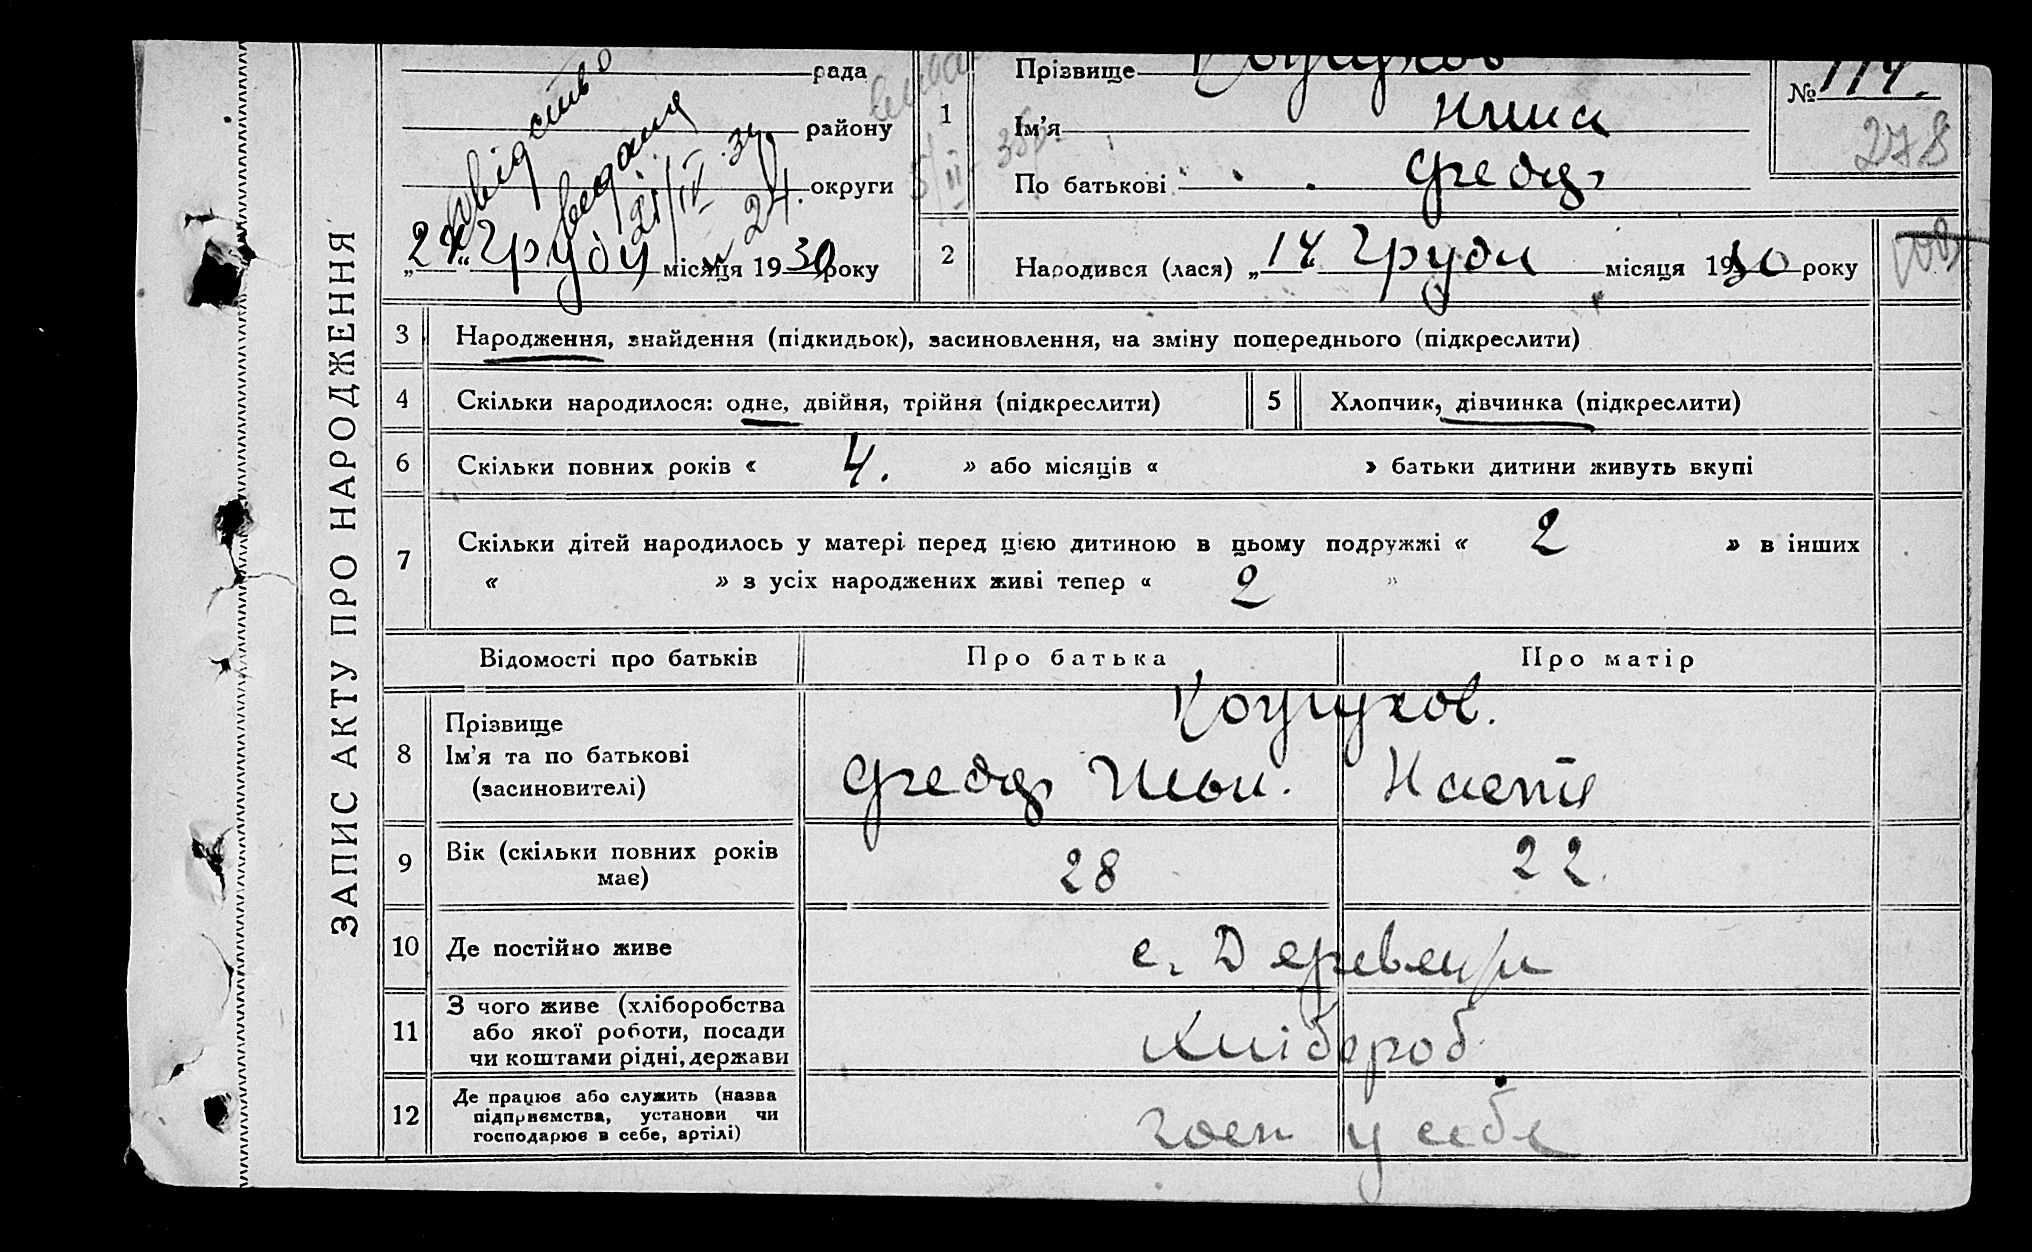 ЗАПИС АКТУ ПРО НАРОДЖЕННЯ
рада
району
округи
свідоцтво
видана
21/IV 34
„24“ Груд місяця 1930 року
1
Прізвище Кожухов
Ім'я Нина
По батькові Федор
№ 114.
278
2
Народився (лася) „14 Грудн місяця 1930 року
3 Народження, знайдення (підкидьок), засиновлення, на зміну попереднього (підкреслити)
4 Скільки народилося: одне, двійня, трійня (підкреслити) 5 Хлопчик, дівчинка (підкреслити)
6 Скільки повних років « 4. » або місяців « » батьки дитини живуть вкупі
7 Скільки дітей народилось у матері перед цією дитиною в цьому подружжі « 2 » в інших
« » з усіх народжених живі тепер « 2 »
Відомості про батьків Про батька Про матір
8 Прізвище Кожухов.
Ім'я та по батькові Федор Настя
(засиновителі)
9 Вік (скільки повних років 28 22
має)
10 Де постійно живе с.
11 З чого живе (хліборобства
або якої роботи, посади Хлібороб
чи коштами рідні, держави
12 Де працює або служить (назва
підприємства, установи чи госп у себе
господарює в себе, артілі)